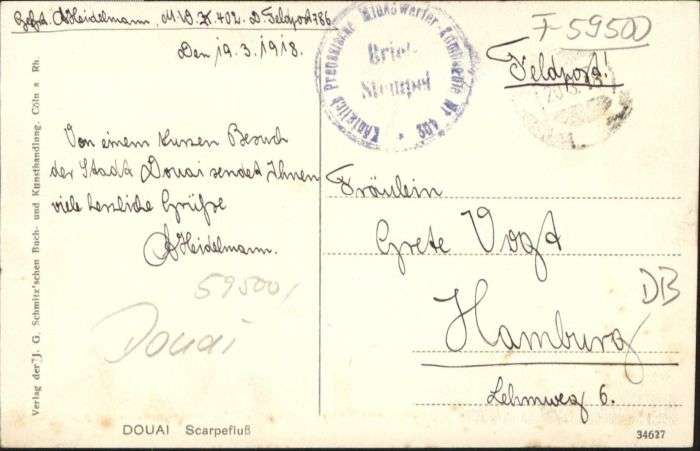 Gefrt. A Heidelmann, M.W.K. 402. D. Feldpost 786.
Den 19.3.1918.
Königlich Preussische Minenwerfer-Kompagnie Nr 402
Brief-
Stempel
F-59500
Feldpost!
Von einem kurzen Besuch
der Stadt Douai sendet Ihnen
viele herzliche Grüße
A Heidelmann.
59500
Douai
Fräulein
Grete Vogt
Hamburg
Lehmweg 6.
DB
Verlag der J. G. Schmitz'schen Buch- und Kunsthandlung, Cöln a Rh.
DOUAI Scarpefluß
34627